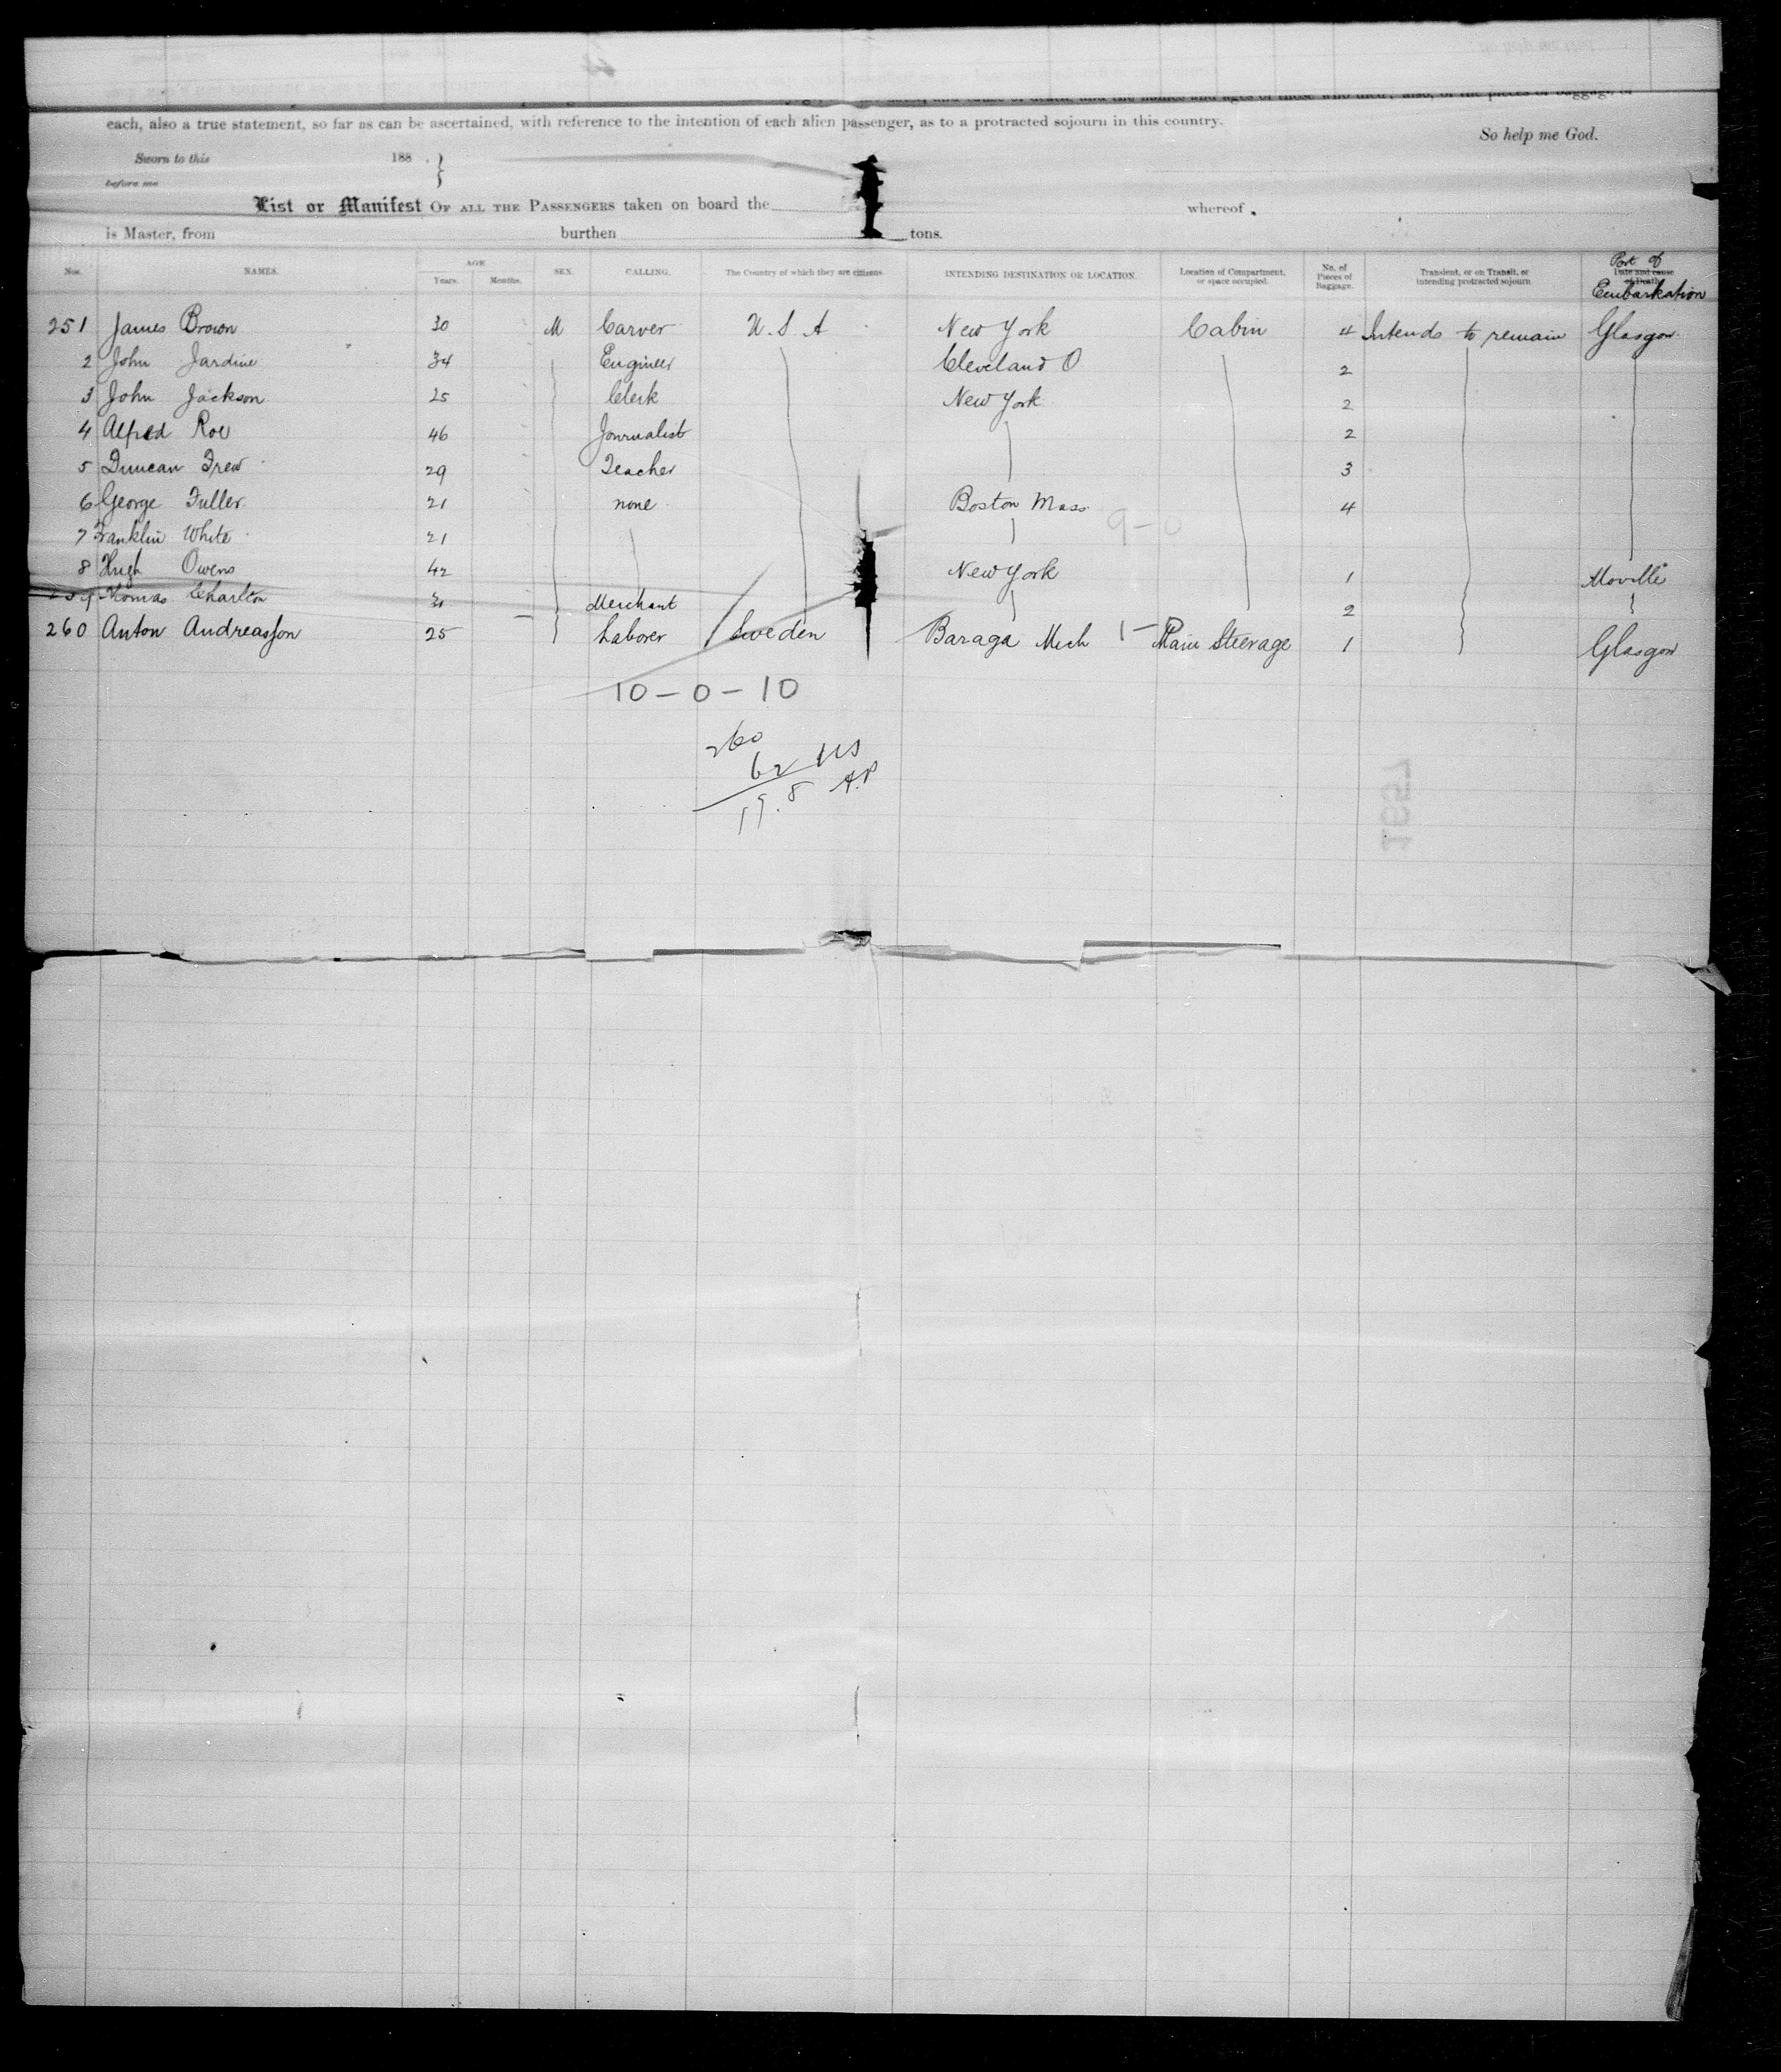 each, also a true statement, so far as can be ascertained, with reference to the intention of each alien passenger, as to a protracted sojourn in this country.
So help me God.
Sworn to this 188 .
before me
List or Manifest OF ALL THE PASSENGERS taken on board the whereof
is Master, from burthen tons.
Nos. NAMES. AGE Years. Months. SEX. CALLING. The Country of which they are citizens INTENDING DESTINATION OR LOCATION. Location of Compartment, or space occupied. No. of Pieces of Baggage. Transient, or on Transit, or intending protracted sojourn Date and cause of Death Port of Embarkation
251 James Brown 30 M Carver U.S.A New York Cabin 4 Intends to remain Glasgow
2 John Jardine 34 Engineer Cleveland O 2
3 John Jackson 25 Clerk New York 2
4 Alfred Roe 46 Journalist 2
5 Duncan Frew 29 Teacher 3
6 George Fuller 21 none Boston Mass 4
7 Franklin White 21
9-0
8 Hugh Owens 42 New York 1 Moville
259 Thomas Charlton Merchant 2
260 Anton Andreasson 25 Laborer Sweden Baraga Mich 1- Main Steerage 1 Glasgow
10-0-10
260
62 US
198 A.P
1657